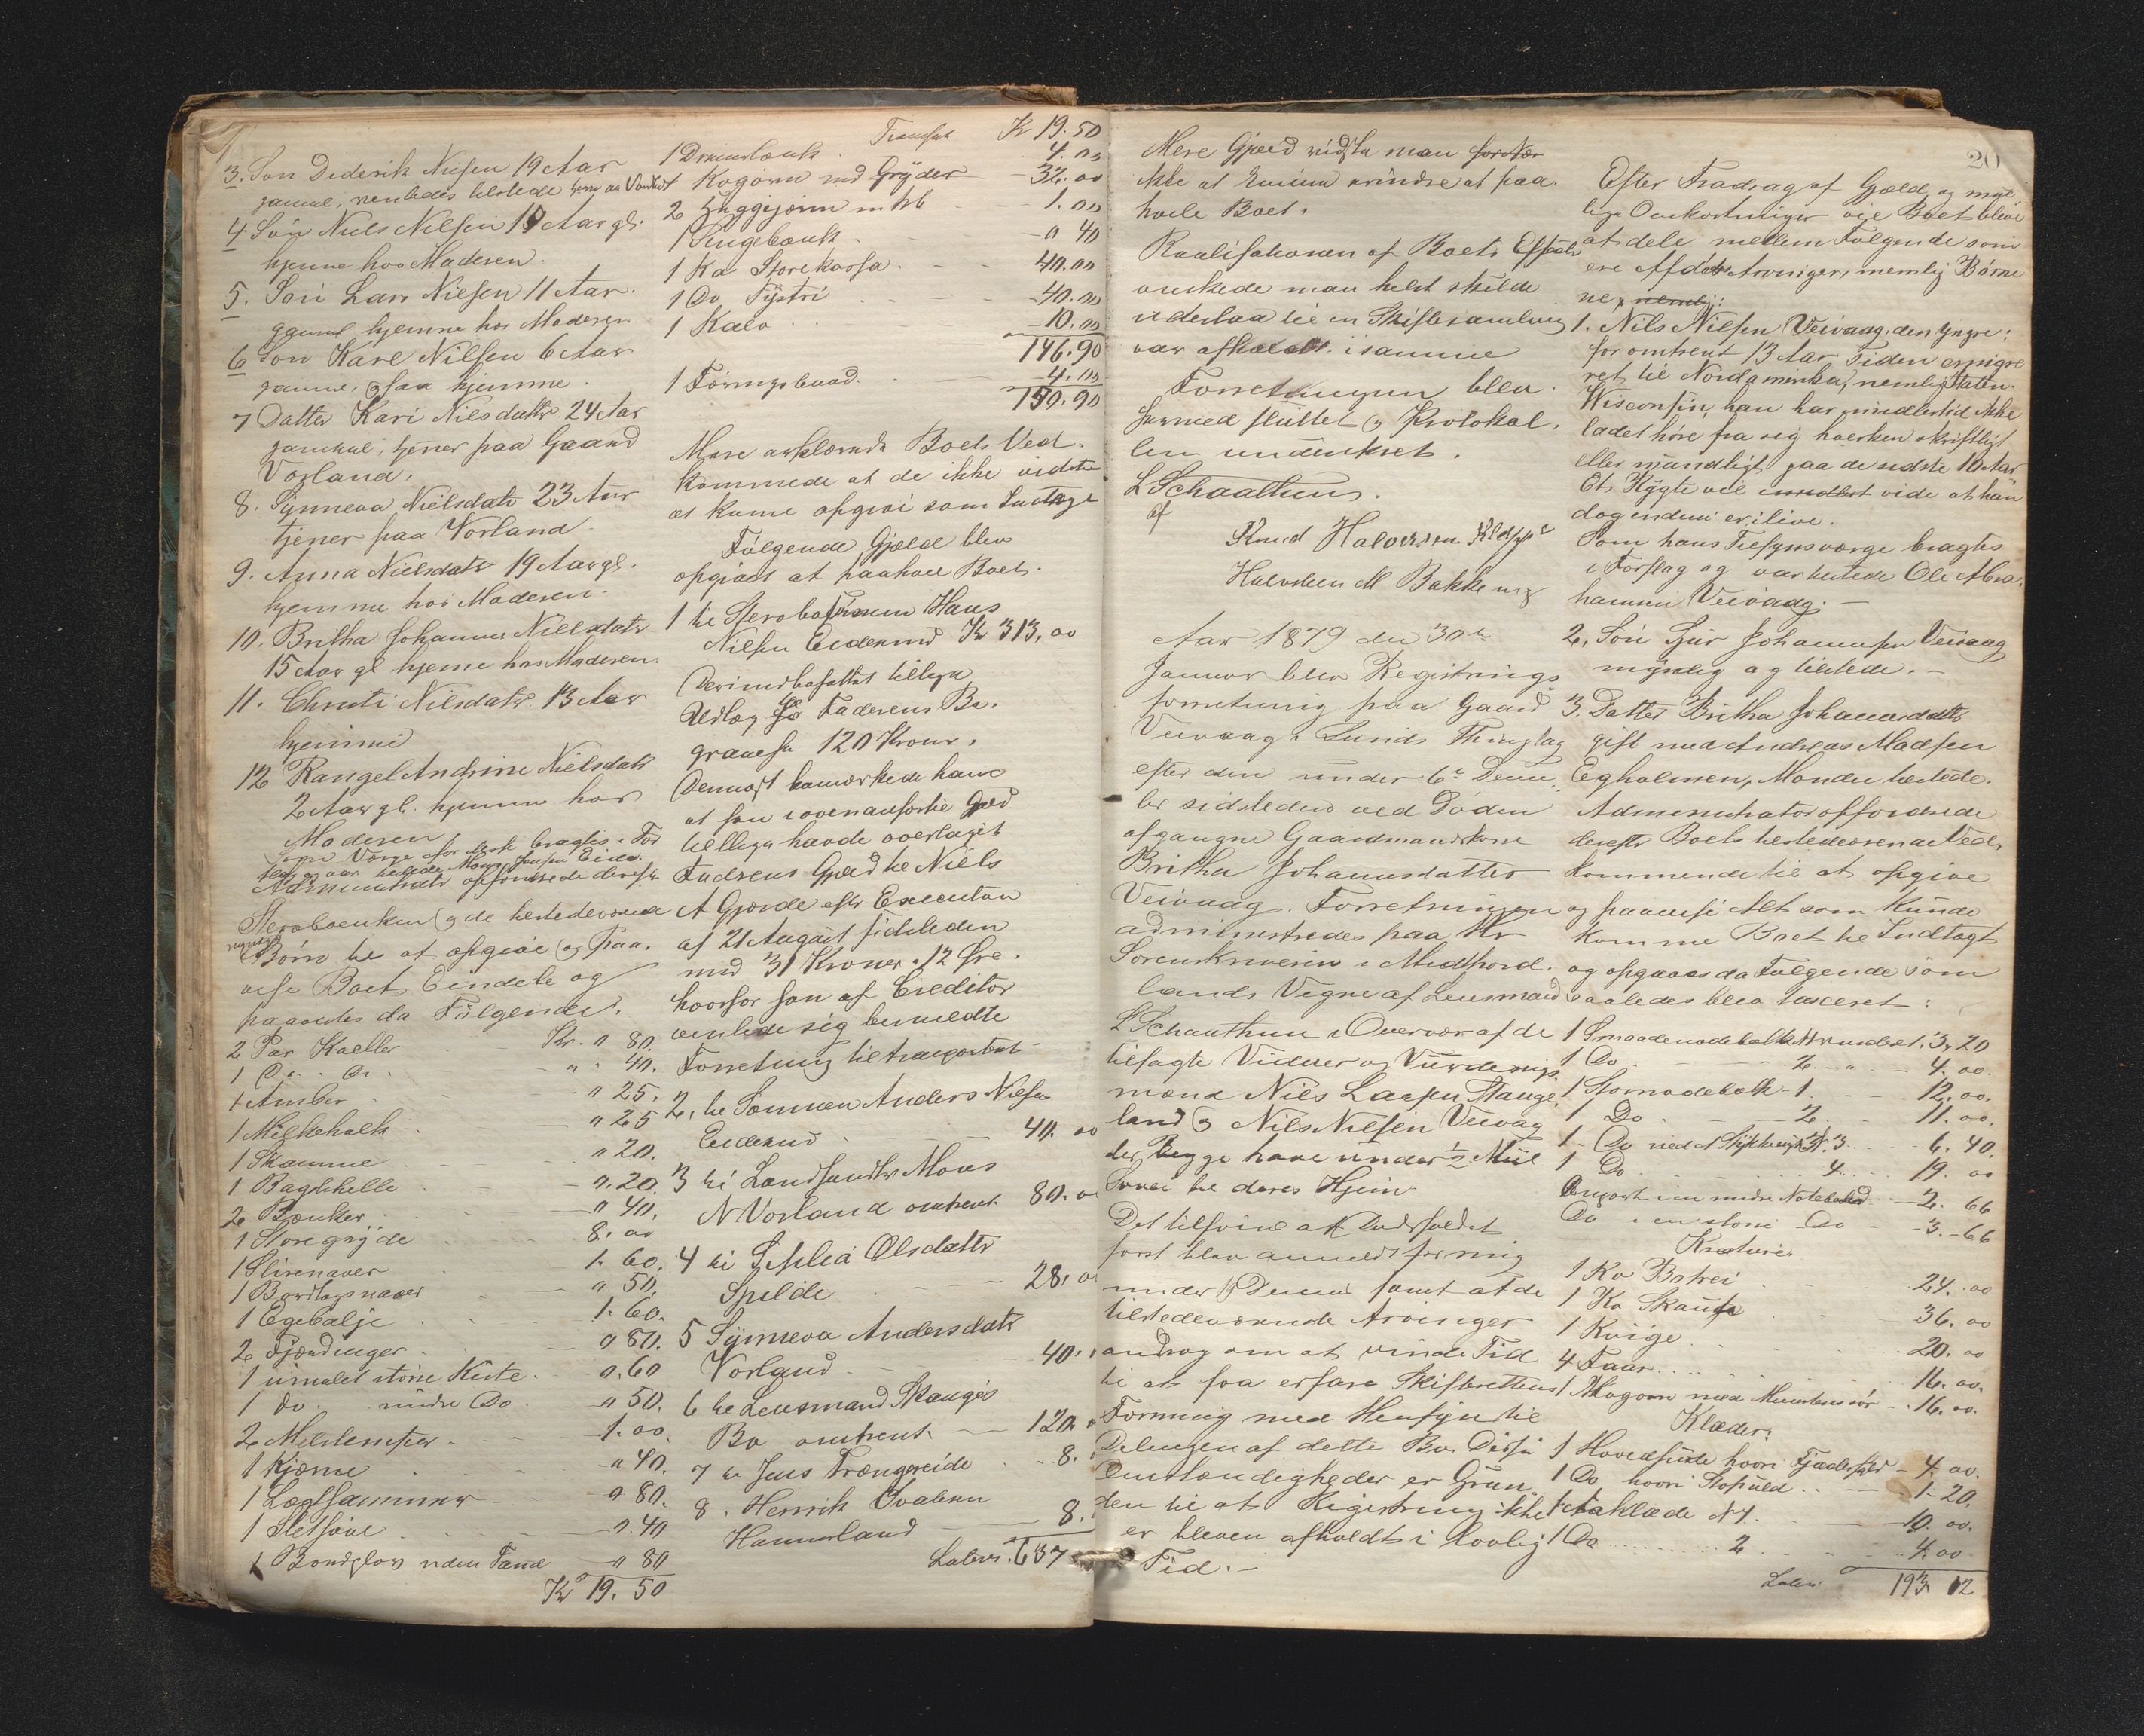 3. Søn Diderik Nilsen 19 Aar
gammel, ventedes tilstede
4 Søn Niels Nilsen 18 Aar gl.
hjemme hos Moderen.
5. Søn Lars Nielsen 11 Aar
gammel hjemme hos Moderen
6 Søn Karl Nilsen 6 Aar
gammel, ogsaa hjemme.
7 Datter Kari Nilsdatter 24 Aar
gammel, tjener paa Gaard
Vorland.
8. Synneva Nielsdatr 23 Aar
tjener paa Vorland
9. Anna Nielsdatr 19 Aar gl.
hjemme hos Moderen.
10. Britha Johanne Nielsdatr
15 Aar gl hjeme hos Moderen.
11. Christi Nilsdatr. 13 Aar
hjemme
12 Rangel Andrine Nielsdatr
2 Aar gl. hjemme hos
Moderen
Som Værge for disse bragtes i For
slag og var tilstede Mons Jensen Eide.
Administrator opfordrede derefter
Sterboenken og de tilstedeværende
myndige
Børn til at opgive og paa-
vise Boets Eiendele og
paavistes da Følgende:
2 Par Kaller Kr. " 80.
1 Do. Do. " 40.
1 Amber " 25.
1 Melkehalk " 25
1 Skamme " 20.
1 Bagehelle " 20.
2 Bænker " 40.
1 Storegryde 8. 00
1 Slirenaver 1. 60.
1 Bordtagsnaver " 50.
1 Egebalje 1. 60.
2 Fjærdinger " 80.
1 umalet større Kiste " 60
1 do. mindre Do. " 50.
2 Melkeringer 1. 00.
1 Kjærne " 40.
1 Lagthammer " 80.
1 " 40
1 uden Tand " 80
Kr 19. 50
Transport Kr 19. 50
1 Drænebænk 4. 00
1 Kogeovn med Gryder 32. 00
2 1. 00
1 Sengebænk " 40
1 Ko Storekorsa 40. 00
1 Do Tystri 40. 00
1 Kalv 10. 00
146. 90
1 Føringsbaad 4. 00
150. 90
Mere erklærede Boets Ved-
kommende at de ikke vidste
at kunne opgive som Indtægt
Følgende Gjæld blev
opgivet at paahvile Boet.
1 til Sterbosønnen Hans
Nilsen Eidesund Kr 313, 00
Derindbefattet tillige
Udlæg til Faderens Be-
gravelse 120 Kroner.
Dernæst bemærkede han
at han i ovenanførte Gjæld
tillige havde overtaget
Faderens Gjæld til Niels
A Gjerde efter Execution
af 21 August sidstleden
med 31 Kroner 12 Øre.
hvorfor han af Creditor
ventede sig bemeldte
Forretning tiltransporteret
2. til Sønnen Anders Nilsen
Eidesund 40. 00
3 til Landhandler Mons
N Vorland omtrent 80. 00
4 til Sesselia Olsdatter
Spilde 28. 00
5 Synneva Andersdatr
Vorland 40.
6 til Lensmand Skauges
Bo omtrent 120.
7 til Jens Trængereide 8.
8. Henrik Svabeen
Hammerland 8.
Lateris 637
Mere Gjæld vidste man
ikke at kunne erindre at paa-
hvile Boet.
Realisationen af Boets Effecter
ønskede man helst skulde
udestaa til en Skiftesamling
var afholdt i samme
Forretningen blev
hermed sluttet og Protokol-
len underskret.
L Schaathun.
af
Knud Halvorsen
Halvdeen M Bakke
Aar 1879 den 30te
Januar blev Registrings-
forretning paa Gaard
Veivaag i Lunds Thinglag
efter den under 6te Decem-
ber sidstleden ved Døden
afgangne Gaardmandskone
Britha Johannesdatter
Veivaag. Forretningen
administredes paa Hr
Sorenskriveren i Midthord-
lands Vegne af Lensmand
L Schaathun i Overvær af de
tilsagte Vidner og Vurderings-
mænd Nils Larsen Hauge-
land og Nils Nilsen Veivaag
der begge have under ½ Miil
Søvei til deres Hjem
Det tilføies at Dødsfaldet
først blev anmeldt for mig
under Decem samt at de
tilstedeværende Arvinger
androg om at vinde Tid
til at faa erfare Skifterettens
Formening med Hensyn til
Delingen af dette Bo. Disse
Omstændigheder er Grun-
den til at Registrering ikke
er bleven afholdt i lovlig
Tid.
20
Efter Fradrag af Gjæld og mue-
lige Omkostninger vise Boet blive
at dele mellem Følgende som
ere Afdødes Arvinger, nemlig Børne
ne, nemlig:
1. Nils Nilsen Veivaag, den Yngre:
for omtrent 13 Aar siden emigre
ret til Nordamerika, nemlig Staten
Wisconsin, han har imidlertid ikke
ladet høre fra sig hverken skriftligt
eller mundtligt paa de sidste 10 Aar
Et Rygte vil imidlert vide at han
dog endnu er i live.
Som hans Tilsynsværge bragtes
i Forslag og var tilstede Ole Abra-
hamsen Veivaag.
2. Søn Sjur Johannesen Veivaag
myndig og tilstede.
3. Datter Britha Johannesdatter
gift med Andreas Madsen
Egholmen, Manden tilstede.
Administrator opfordrede
derefter Boets tilstedeværende Ved-
kommende til at opgive
og paavise Alt som kunde
komme Boet til Indtægt
og opgaves da Følgende som
saaledes blev taxeret:
1 3. 20
1 Do 2 4. 00.
1 Stornodebolk 1 12. 00.
1 Do 2 11. 00.
1 Do 3 6. 40.
1 Do 4 19. 00
Anpart i en mindre Notebaad 2. 66
Do i en større Do 3. 66
Kreature
1 Ko Botrei 24. 00
1 Ko Skaufa 36. 00
1 Kvige 20. 00
4 Faar 16. 00.
1 Kogeovn med 16. 00.
Klæder:
1 Hovedpude hvori Fjæder 4. 00.
1 Do hvori Stopuld 1. 20.
1 Aaklæde N 1 10. 00.
1 Do 2 4. 00
Lateris 193. 12